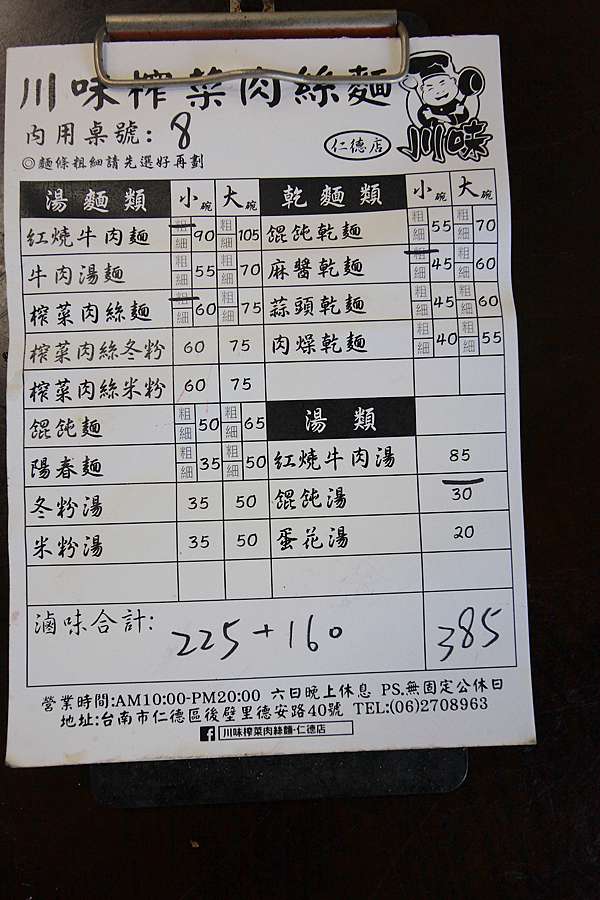 川味榨菜肉絲麵
內用桌號: 8
仁德店
川味
◎麵條粗細請先選好再劃
湯麵類 小碗 大碗 乾麵類 小碗 大碗
紅燒牛肉麵 粗 細 90 粗 細 105 餛飩乾麵 粗 細 55 粗 細 70
牛肉湯麵 粗 細 55 粗 細 70 麻醬乾麵 粗 細 45 粗 細 60
榨菜肉絲麵 粗 細 60 粗 細 75 蒜頭乾麵 粗 細 45 粗 細 60
榨菜肉絲冬粉 60 75 肉燥乾麵 粗 細 40 粗 細 55
榨菜肉絲米粉 60 75
餛飩麵 粗 細 50 粗 細 65 湯類
陽春麵 粗 細 35 粗 細 50 紅燒牛肉湯 85
冬粉湯 35 50 餛飩湯 30
米粉湯 35 50 蛋花湯 20
滷味合計: 225+160 385
營業時間:AM10:00-PM20:00 六日晚上休息 PS.無固定公休日
地址:台南市仁德區後壁里德安路40號 TEL:(06)2708963
f 川味榨菜肉絲麵-仁德店